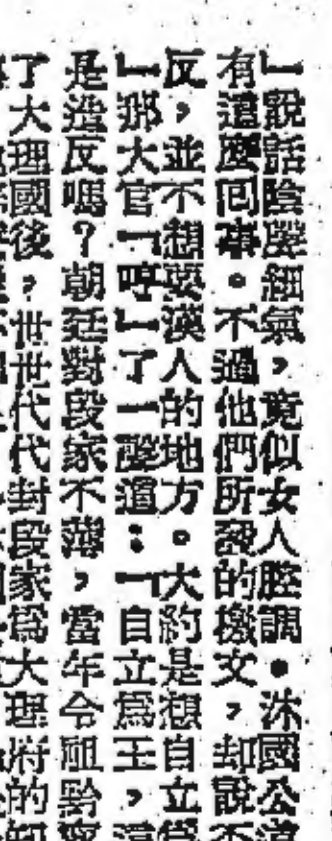 」說話陰聲細氣,竟似女人腔調。沐國公道
有這麼回事。不過他們所發的檄文,却說不
反,並不想要漢人的地方。大約是想自立為
」那大官「哼」了一聲道:「自立為王,這
是造反嗎?朝廷對段家不薄,當年令祖黔寧
了大理國後,世世代代封段家為大理府的知